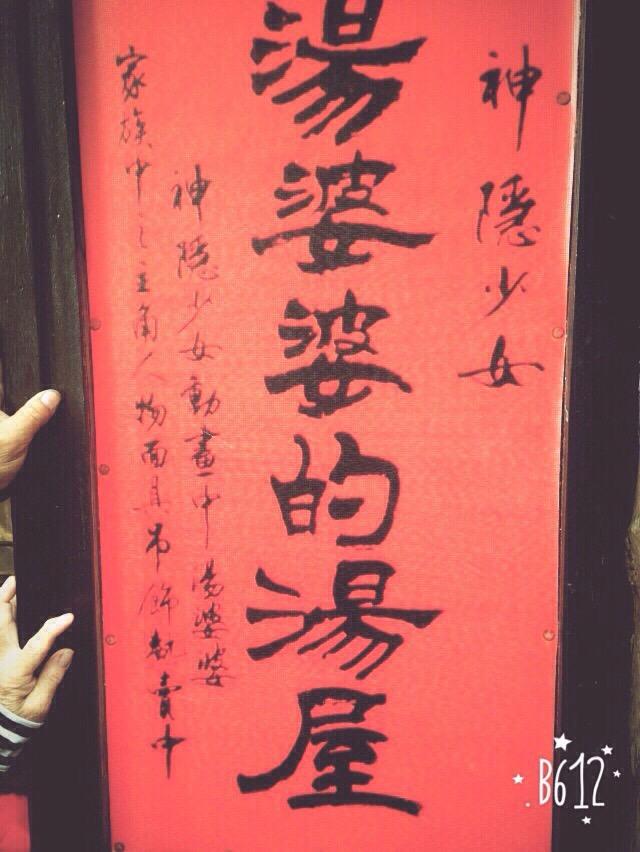 神隱少女
湯婆婆的湯屋
神隱少女動畫中湯婆婆
家族中之主角人物面具吊飾熱賣中
B612